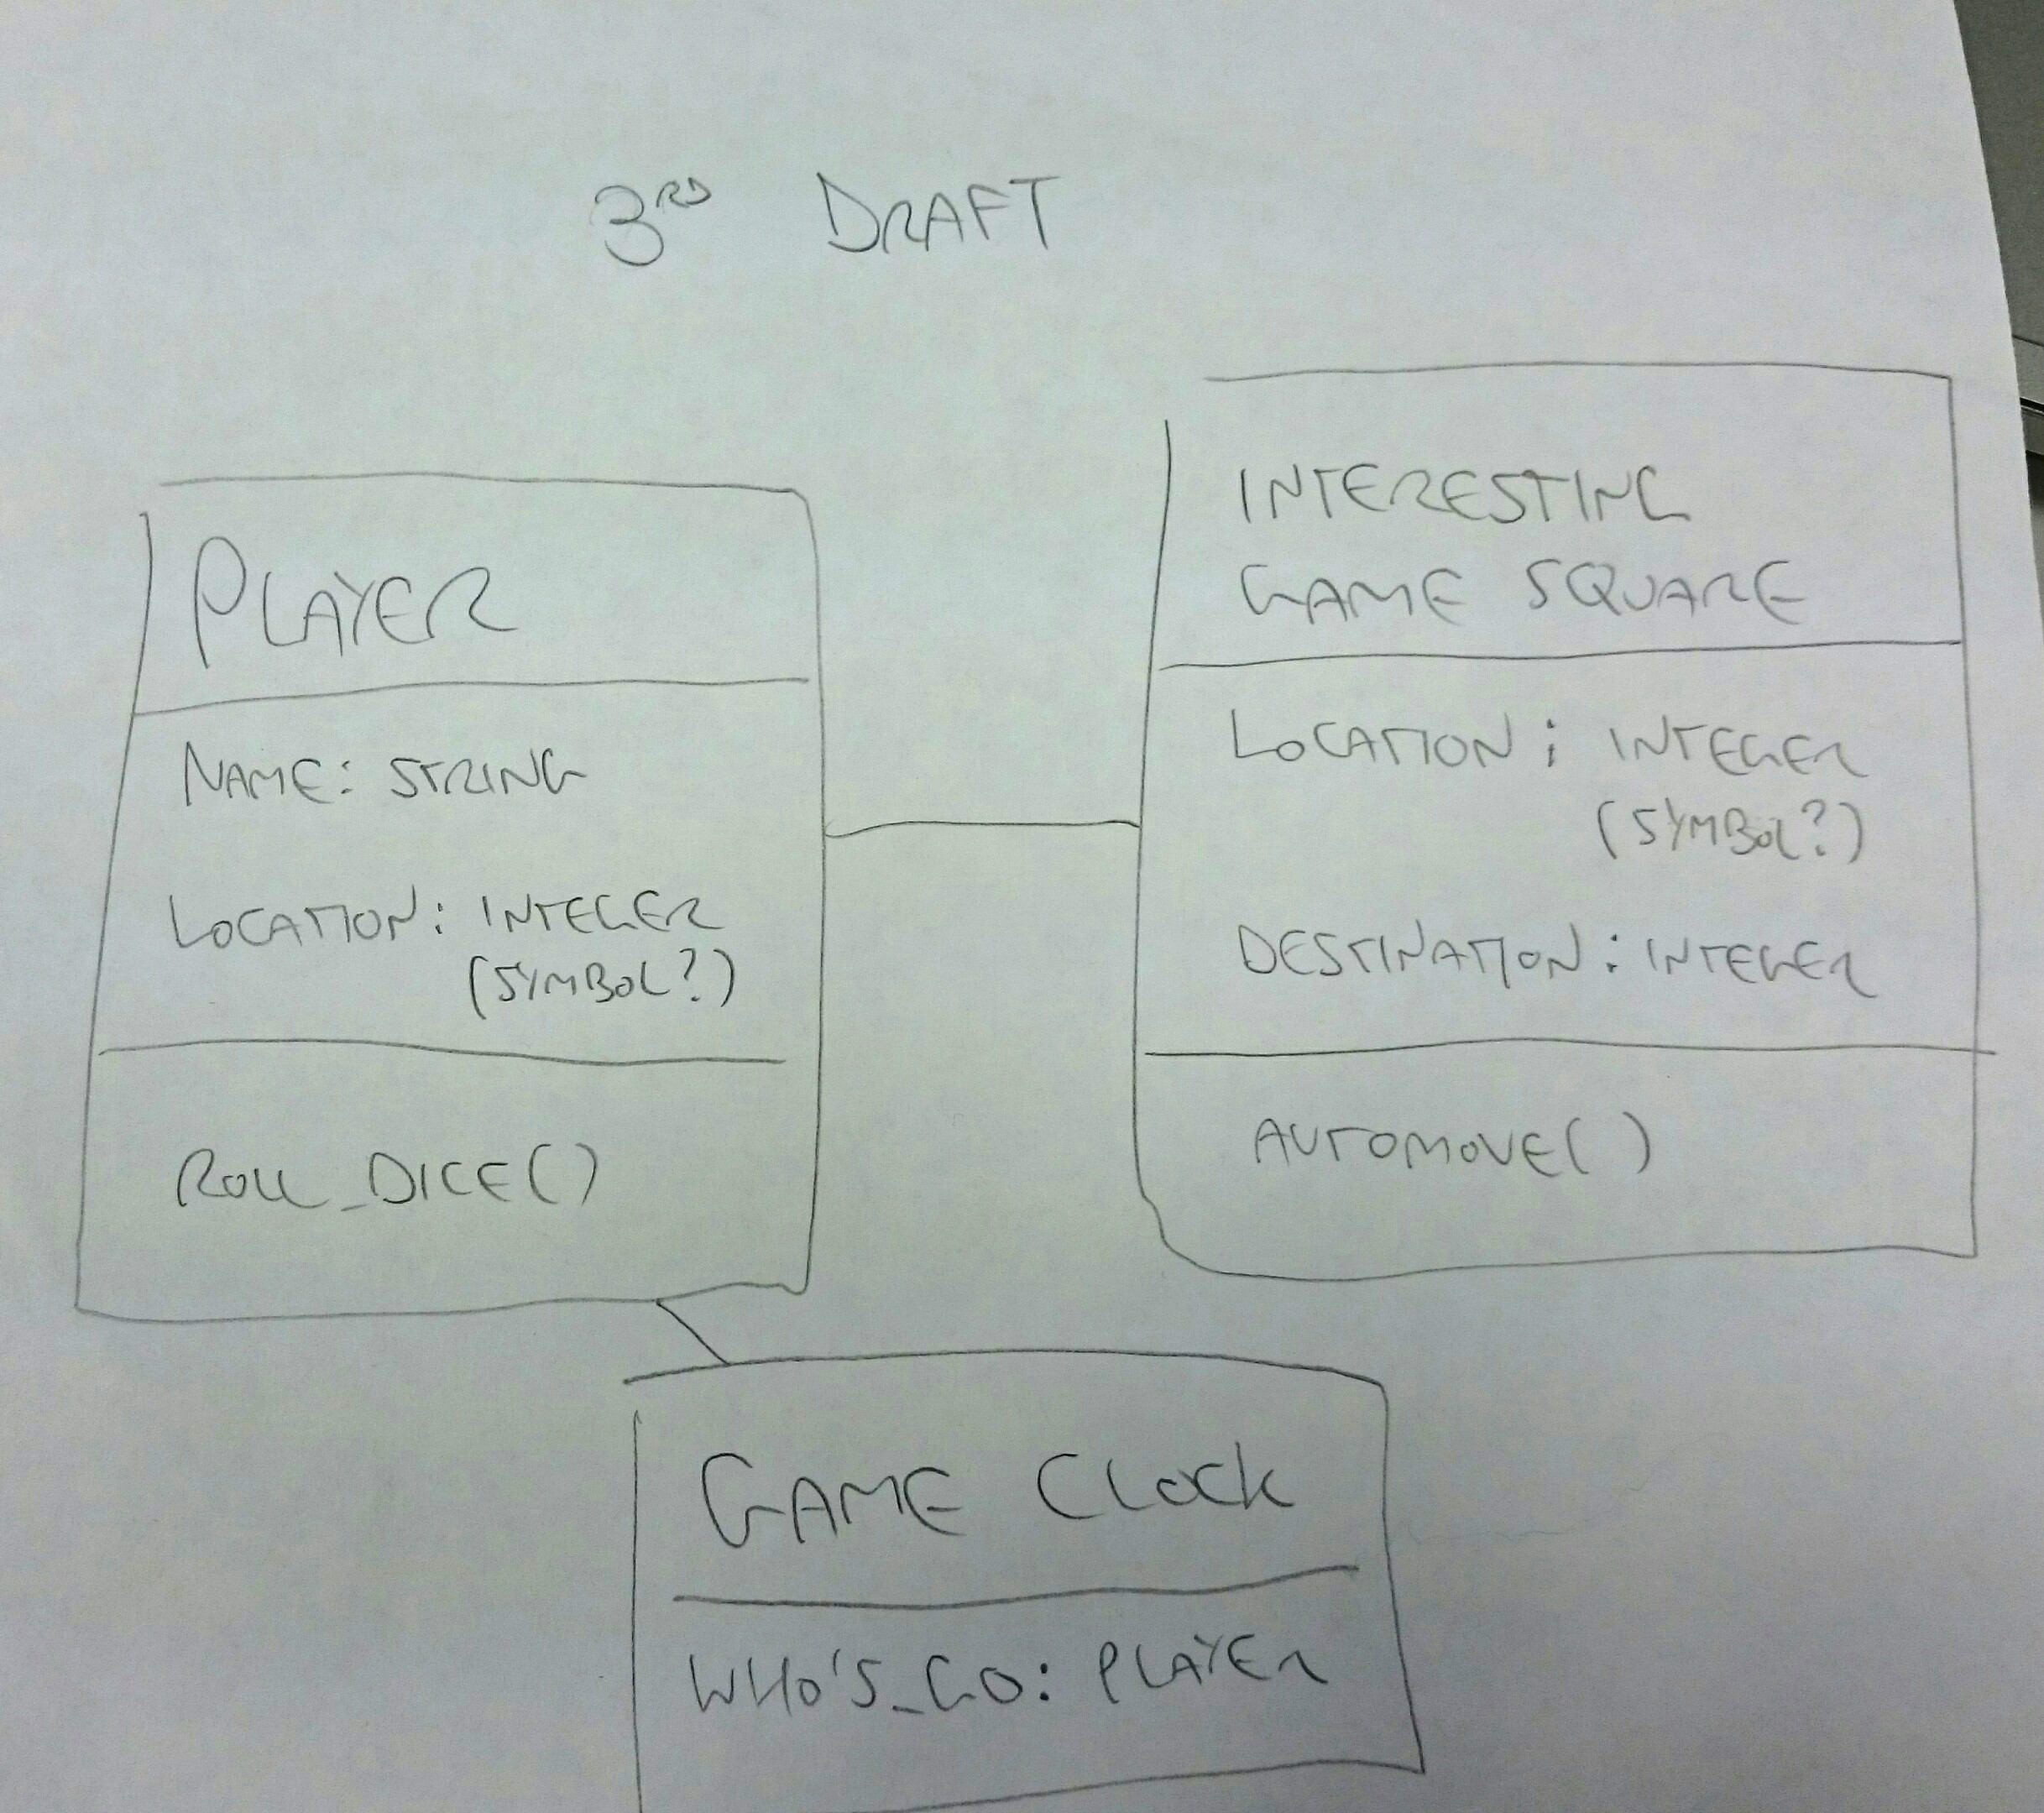 3RD DRAFT
PLAYER
NAME: STRING
LOCATION: INTEGER
(SYMBOL?)
ROLL_DICE()
INTERESTING
GAME SQUARE
LOCATION: INTEGER
(SYMBOL?)
DESTINATION: INTEGER
AUTOMOVE()
GAME CLOCK
WHO'S_GO: PLAYER